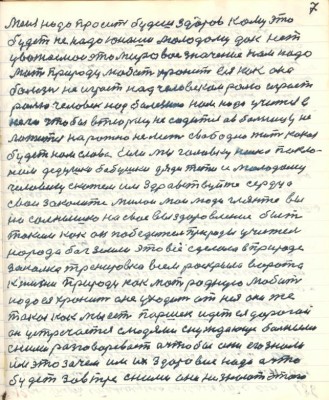 7
меня надо просить будеш здоров кому это
будет не надо юноши молодому дак нет
уважаемое это мировое значение нам надо
мать природу любить хранить ея как она
болезнь не играет над человеком ролю играет
ролю человек над болезнию нам надо учится в
чтобы в тюрму не садится а в больницу не
ложится на рожно не лезть свободно жить какая
будет нам слава если мы головку покло-
ним дедушки бабушки дяди тети и молодому
человеку скажем им здравствуйте сердцо
свои закалите милои мои люди гляньте вы
на солнышко на свое выздоровление быть
таким как он победитель природы учитель
народа Бог земли это всё сделано в природе
закалка тренировка всем раскрыла ворота
к жизни природу как мать родную любить
надо ея хранить она уходит от нея она же
такая как идет парнек идет ея дорогаи
он устречается с людями с нуждающие больнаю
с ними разговаривает а чтобы они его знали
им это зачем им их здоровие надо а что
будет завтра с ними они незнают этого